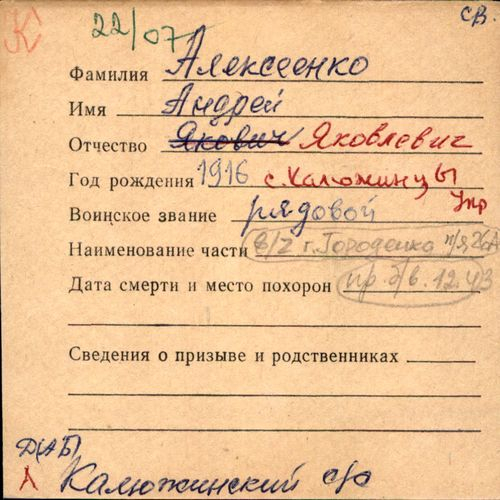 К 22/07 св.
Фамилия Алексеенко
Имя Андрей
Отчество Якович Яковлевич
Год рождения 1916 с. Калюжинцы
Укр
Воинское звание рядовой
Наименование части в/ч г. Городенко п/я
Дата смерти и место похорон пр. б/в. 12.43
Сведения о призыве и родственниках
Д(АБ)
Калюжинский с/с